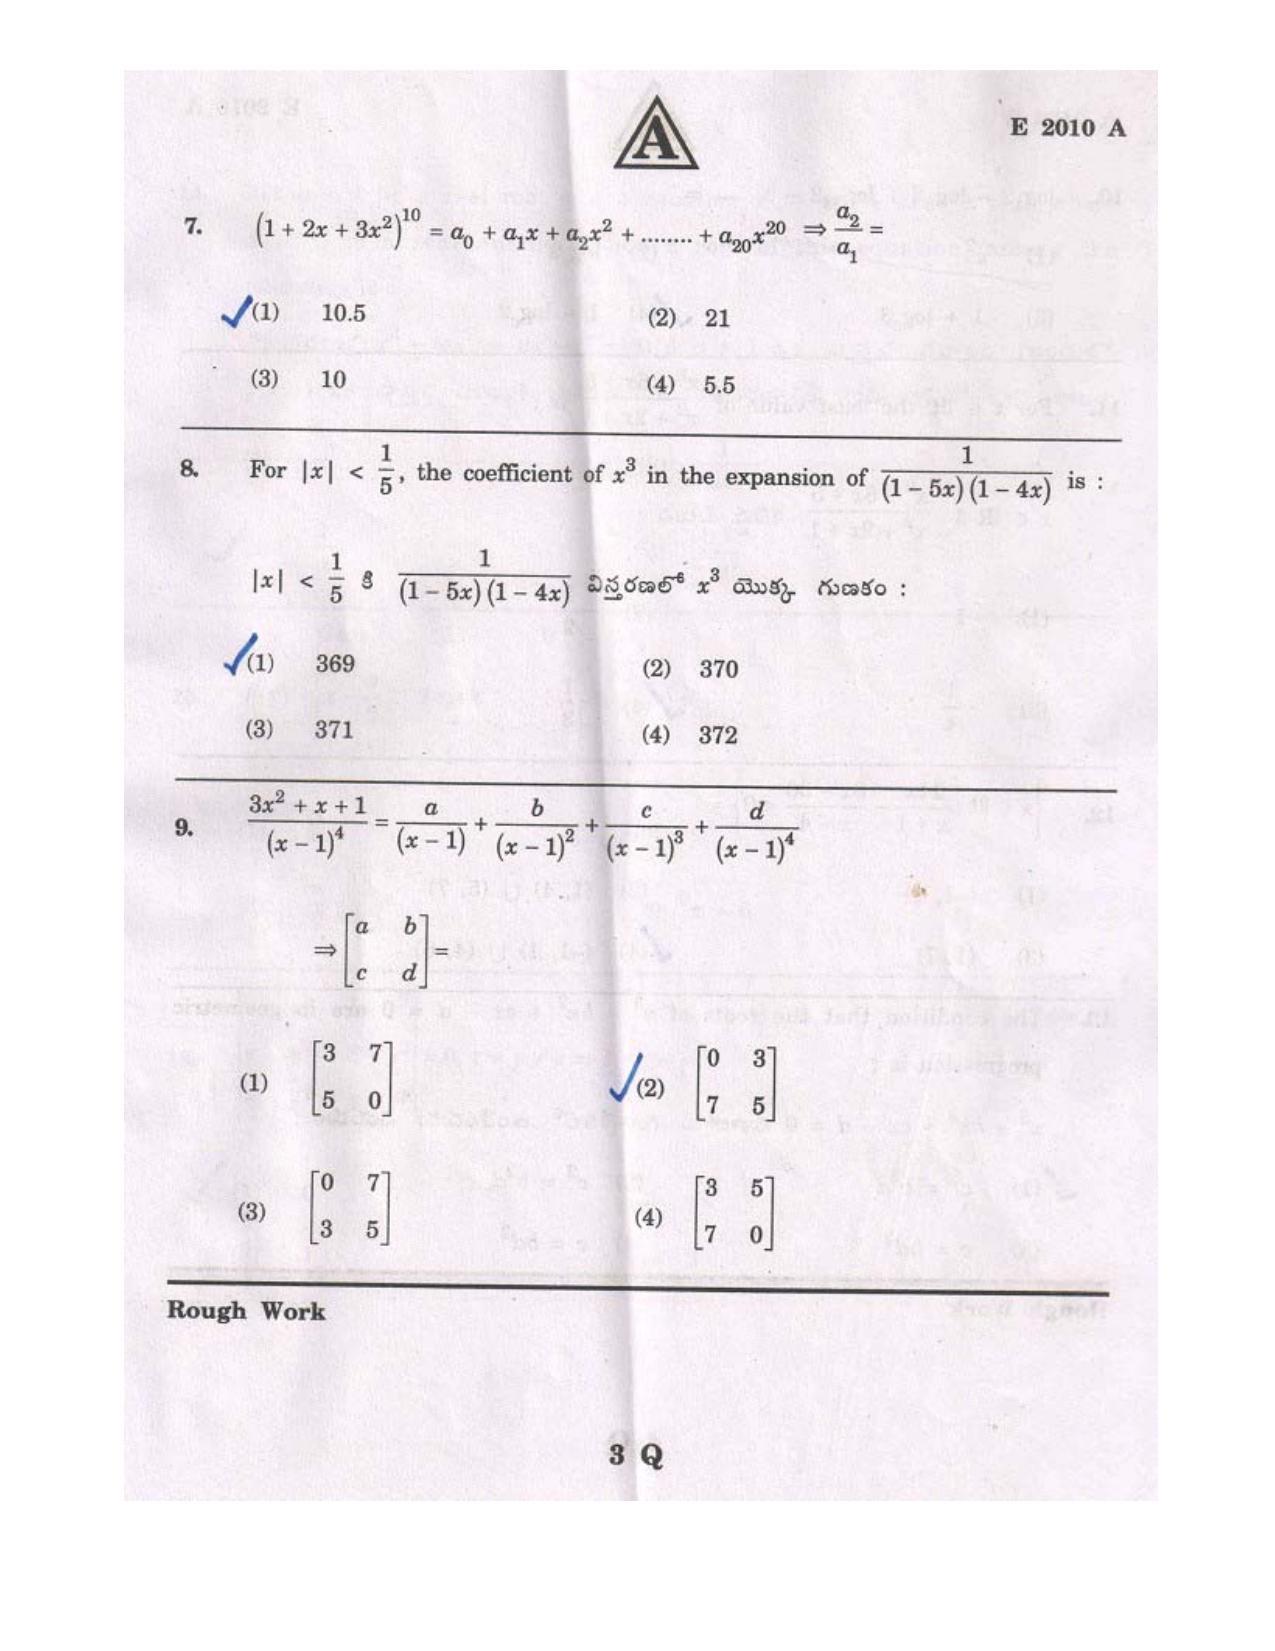 A
E 2010 A
7. (1 + 2x + 3x²)¹⁰ = a₀ + a₁x + a₂x² + ........ + a₂₀x²⁰ ⇒ a₂/a₁ =
(1) 10.5 (2) 21
(3) 10 (4) 5.5
8. For |x| < 1/5, the coefficient of x³ in the expansion of 1/((1 – 5x)(1 – 4x)) is :
|x| < 1/5 కి 1/((1 – 5x)(1 – 4x)) విస్తరణలో x³ యొక్క గుణకం :
(1) 369 (2) 370
(3) 371 (4) 372
9. (3x² + x + 1)/(x – 1)⁴ = a/(x – 1) + b/(x – 1)² + c/(x – 1)³ + d/(x – 1)⁴
⇒ [a b
c d] =
(1) [3 7
5 0] (2) [0 3
7 5]
(3) [0 7
3 5] (4) [3 5
7 0]
Rough Work
3 Q